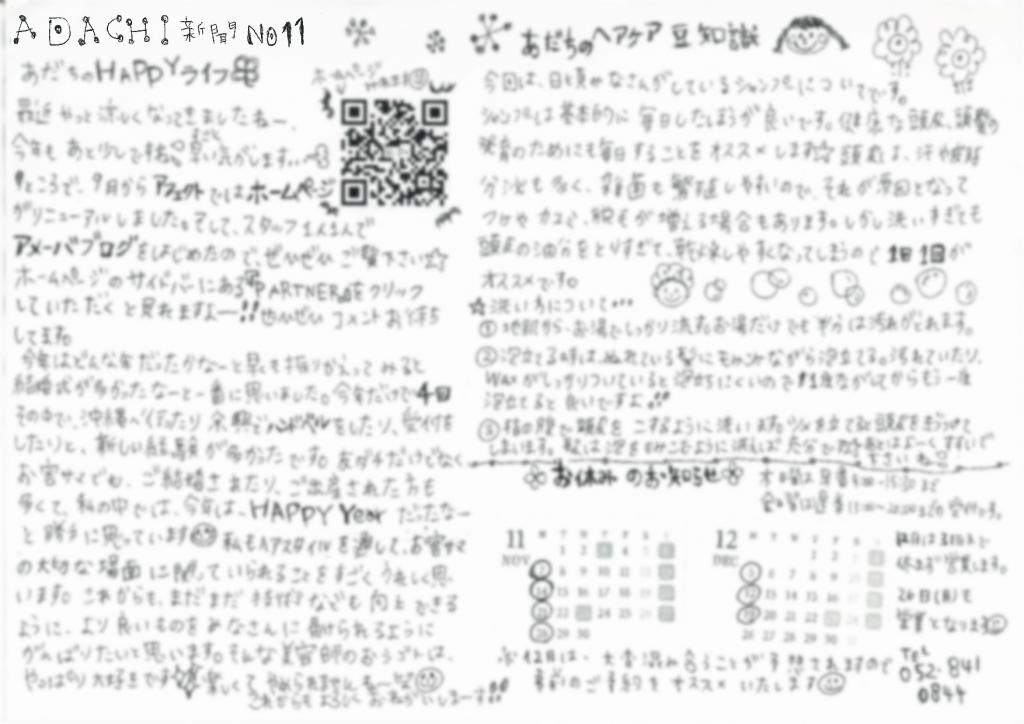 ADACHI 新聞 No11
あだちのHAPPYライフ
ホームページ
最近やっと涼しくなってきましたねー、
今年もあと少しで終 早い気がします。
ところで、9月からアフェクトではホームページ
がリニューアルしました。そして、スタッフ1人1人で
アメーバブログをはじめたので、ぜひぜひご覧下さい☆
ホームページのサイドバーにあるPARTNERをクリック
していただくと見れますよー!!ぜひぜひコメントお待ち
してます。
今年はどんな年だったかなーと早くも振りかえってみると
結婚式が多かったなーと一番に思いました。今年だけで4回
その中で、沖縄へ行ったり余興でハンドベルをしたり、受付を
したりと、新しい経験が多かったです。友ダチだけでなく
お客サマでも、ご結婚されたり、ご出産された方も
多くて、私の中では、今年は、HAPPY Yearだったなー
と勝手に思っています 私もヘアスタイルを通して、お客サマ
の大切な場面に携っていられることをすごくうれしく思
います。これからも、まだまだ技術なども向上できる
ように、より良いものをみなさんに届けられるように
がんばりたいと思います。そんな美容師のおシゴトは、
やっぱり大好きです 楽しくてやめられませんもーん
これからもよろしくおねがいしまーす!!
あだちのヘアケア豆知識
今回は、日と頃みなさんがしているシャンプーについてです。
シャンプーは基本的に毎日したほうが良いです。健康な頭皮、頭髪の
発育のためにも毎日することをオススメします☆頭皮は、汗や皮脂
分泌も多く、雑菌も繁殖しやすいので、それが原因となって
フケやカユミ、脱毛が増える場合もあります。しかし洗いすぎても
頭皮の油分をとりすぎて、乾燥しやすくなってしまうので1日1回が
オススメです。
☆洗い方について・・・
①地肌から、お湯でしっかり流す。お湯だけでも半分は汚れがとれます。
②泡立てる時は、ぬれている髪にもみこみながら泡立てる。汚れていたり、
Waxがしっかりついていると泡立ちにくいので1度ながしてからもう一度
泡立てると良いですよ!!
③指の腹で頭皮をこするように洗います。ツメを立てると頭皮をきずつけて
しまいます。髪は泡をもみこむように洗えば充分です。あとはよーくすすいで
下さいね
お休みのお知らせ
11 NOV
M T W T F S S
1 2 3 4 5 6
7 8 9 10 11 12 13
14 15 16 17 18 19 20
21 22 23 24 25 26 27
28 29 30
12 DEC
M T W T F S S
1 2 3 4
5 6 7 8 9 10 11
12 13 14 15 16 17 18
19 20 21 22 23 24 25
26 27 28 29 30 31
休まず営業します。
26日(月)も
営業となります
※12月は、大変混み合うことが予想されますので
事前のご予約をオススメいたします
TEL
052-841
0844